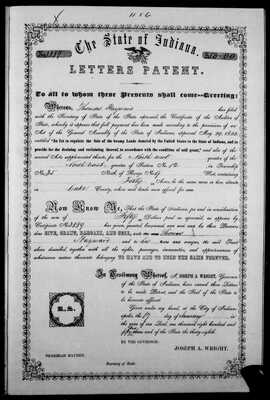 The State of Indiana.
LETTERS PATENT.
To all to whom these Presents shall come—Greeting:
Whereas, Thomas has filed
with the Secretary of State of the State aforesaid the Certificate of the Auditor of
State, whereby it appears that full payment has been made according to the provisions of an
Act of the General Assembly of the State of Indiana, approved May 29, 1852,
entitled "An Act to regulate the Sale of the Swamp Lands donated by the United States to the State of Indiana, and to
provide for the draining and reclaiming thereof in accordance with the condition of said grant," and also of the
several Acts supplemental thereto, for the North West quarter of the
North West quarter of Section No. 12 in Township
No. 34 North of Range No. 9 West containing
Forty Acres, be the same more or less, situate
in Lake County, where such lands were offered for sale.
Now Know Ye, That the State of Indiana, for and in consideration
of the sum of Fifty Dollars paid as aforesaid, as appears by
Certificate No. has given, granted, bargained and sold, and by these Presents
does GIVE, GRANT, BARGAIN, AND SELL, unto the said Thomas
and to his heirs and assigns, the said Tract
above described, together with all the rights, privileges, immunities, and appurtenances of
whatsoever nature thereunto belonging TO HAVE AND TO HOLD THE SAME FOREVER.
In Testimony Whereof, I, JOSEPH A. WRIGHT, Governor
of the State of Indiana, have caused these Letters
to be made Patent and the Seal of the State to
be hereunto affixed.
Given under my hand, at the City of Indianapolis,
the day of January in
the year of our Lord, one thousand eight hundred and
fifty and of the State the thirty-eighth.
L.S.
BY THE GOVERNOR:
JOSEPH A. WRIGHT.
Secretary of State.